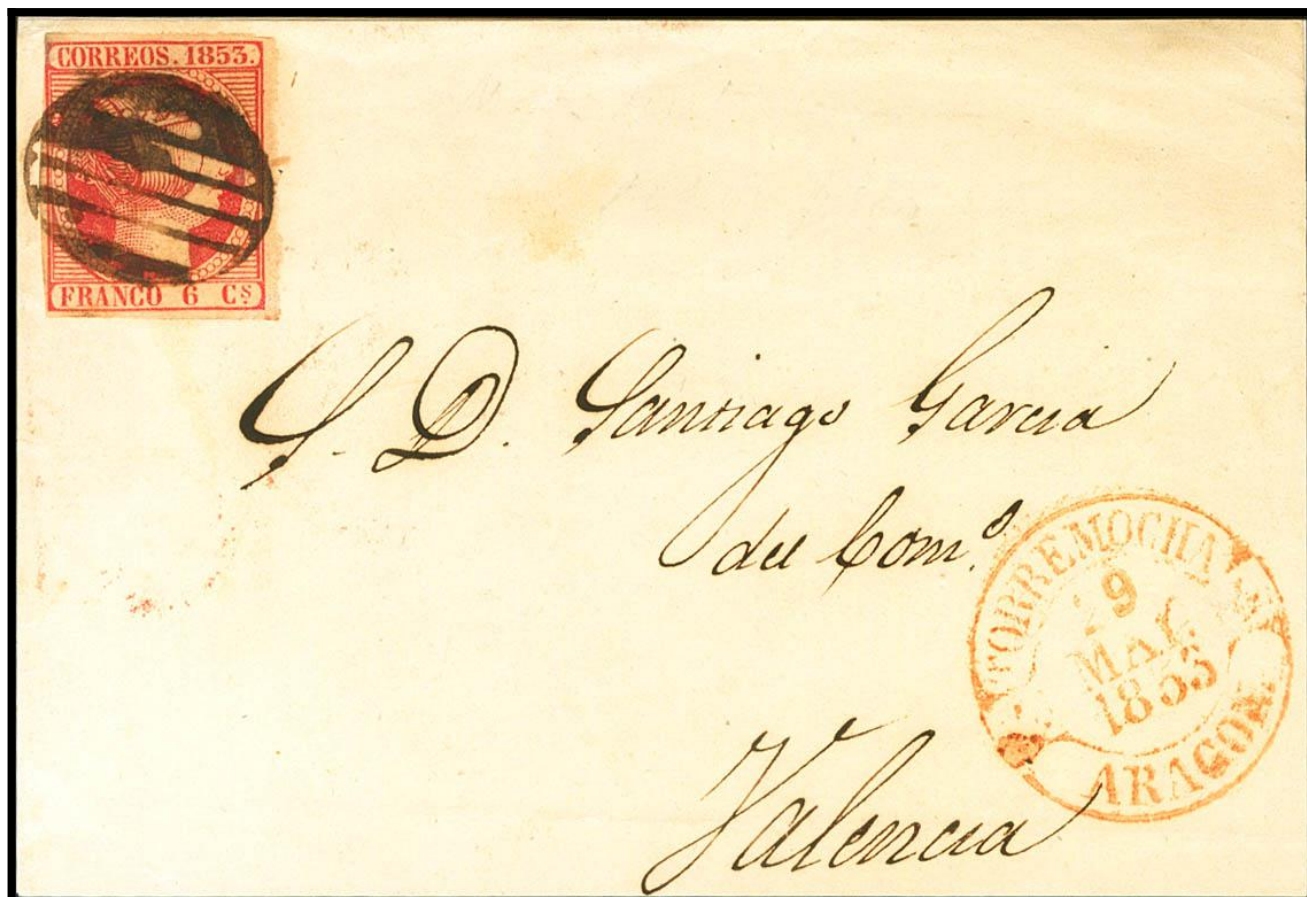 CORREOS. 1853.
FRANCO 6 Cˢ
S. D. Santiago Garcia
del Comº.
TORREMOCHA
1853
ARAGON.
Valencia